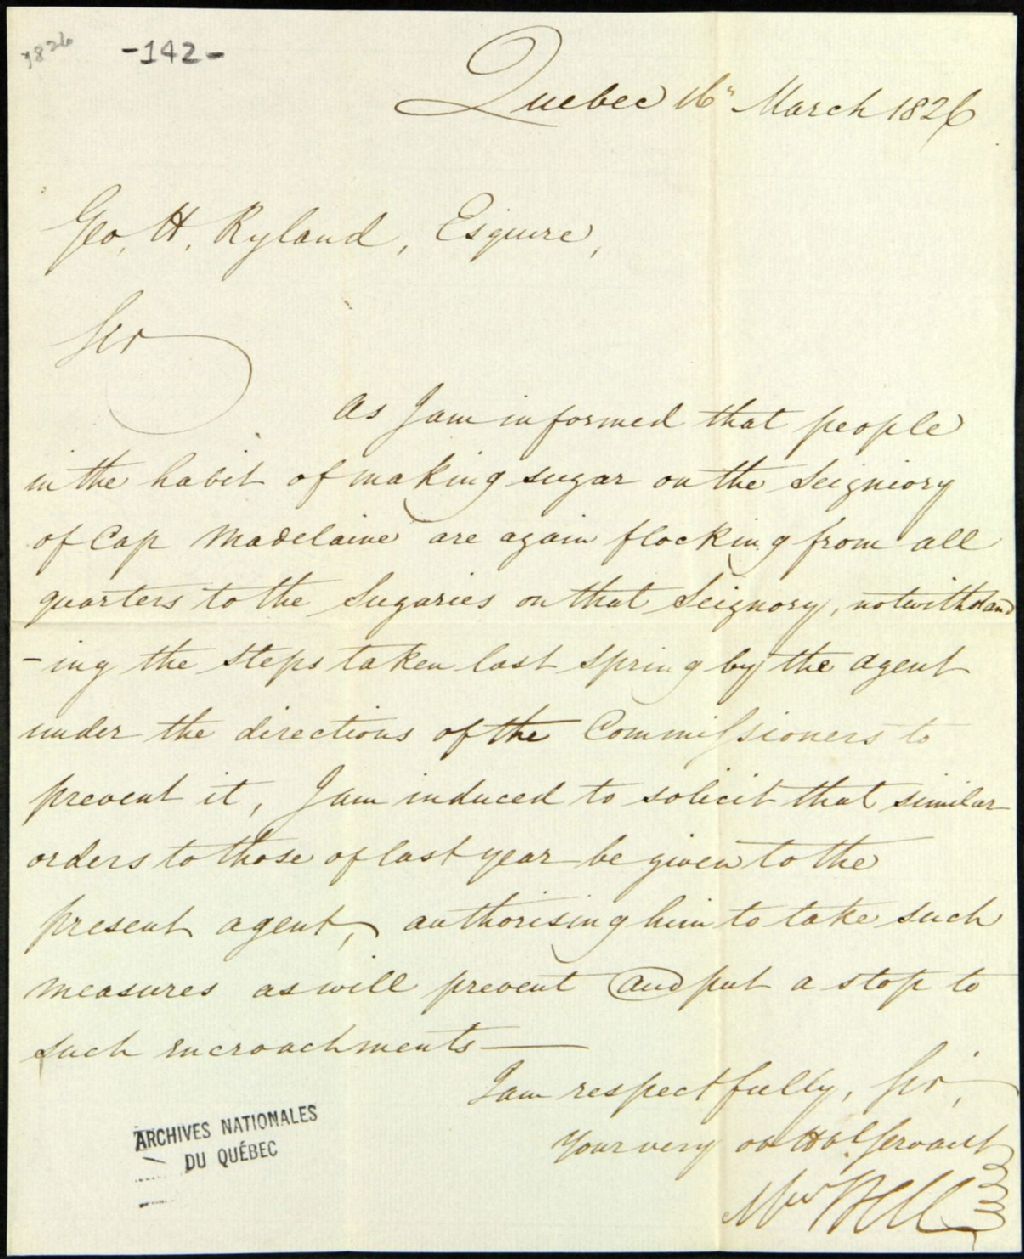 1826
-142-
Quebec 16" March 1826
Geo. H. Ryland, Esquire,
Sir
As I am informed that people
in the habit of making sugar on the Seigniory
of Cap Madelaine are again flocking from all
quarters to the Sugaries on that Seignory, notwithstand
-ing the steps taken last spring by the agent
under the directions of the Commissioners to
prevent it, I am induced to solicit that similar
orders to those of last year be given to the
present agent, authorising him to take such
measures as will prevent and put a stop to
such encroachments —
I am respectfully, Sir,
Your very ob Hbl. Servant
Mw Bell
ARCHIVES NATIONALES
DU QUÉBEC